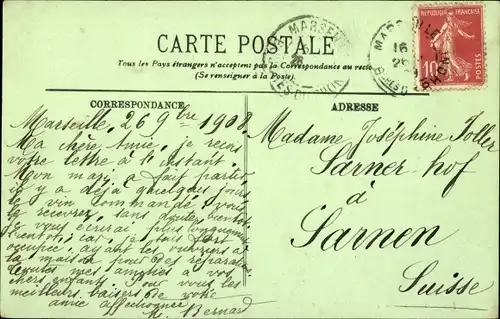 CARTE POSTALE
Tous les Pays étrangers n'acceptent pas la Correspondance au recto
(Se renseigner à la Poste)
MARSEILLE
MARSEILLE
16
25
RÉPUBLIQUE FRANÇAISE
10
CORRESPONDANCE
Marseille, 26 9bre 1908
Ma chère Amie, je reçois
votre lettre à l'instant.
Mon mari a fait partir
il y a déjà quelques jours
le vin commandé, vous
la recevrez, sans doute, bientôt
je vous écrirai plus longuement
bientôt, car je suis fort
occupée, ayant les ouvriers à
la maison pour des réparations
Toutes mes amitiés à vos
chers enfants, pour vous les
meilleurs baisers de votre
amie affectionnée
M. Bernard
ADRESSE
Madame Joséphine Toller
Sarner hof
à
Sarnen
Suisse